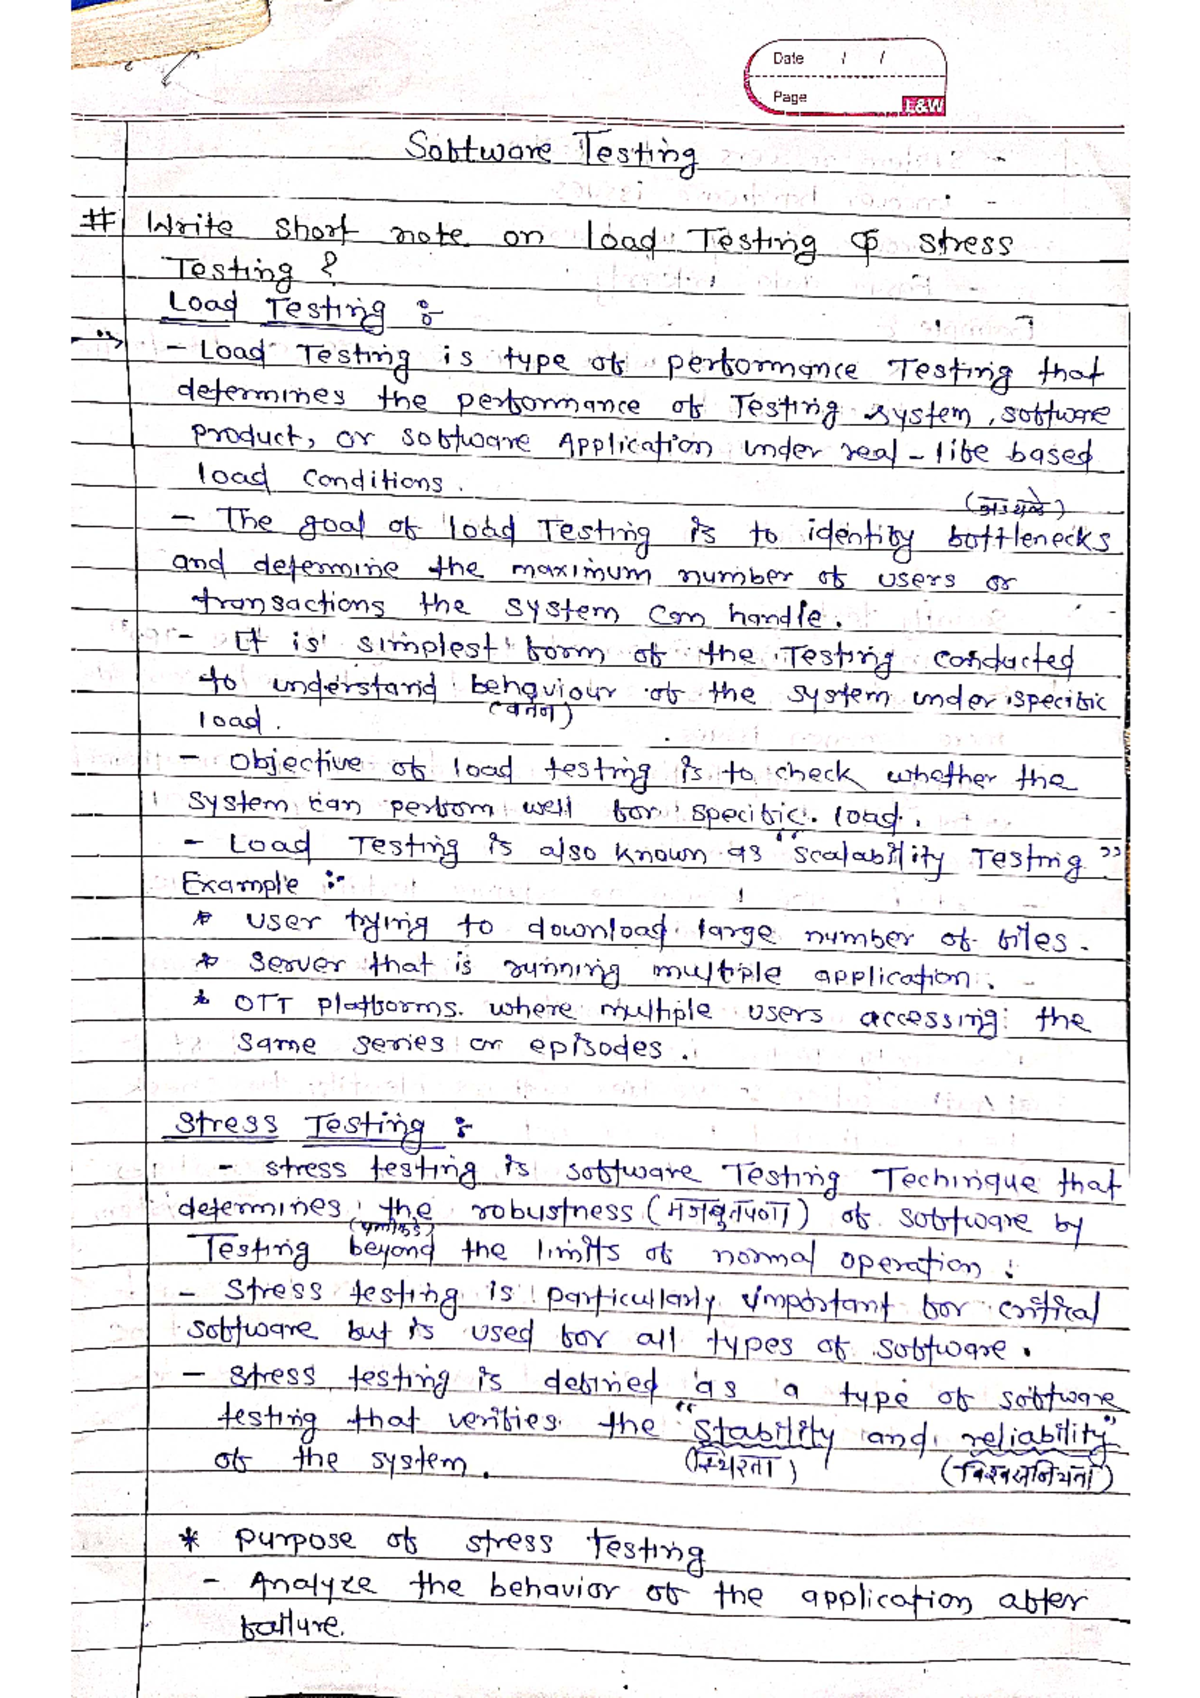 Date / /
Page
L&W
Software Testing
# Write short note on load Testing & stress
Testing ?
Load Testing :-
- Load Testing is type of performance Testing that
determines the performance of Testing system, software
product, or software Application under real-life based
load conditions.
(अडथळे)
- The goal of load Testing is to identify bottlenecks
and determine the maximum number of users or
transactions the system can handle.
- It is simplest form of the Testing conducted
to understand behaviour of the system under specific
(वर्तन)
load.
- Objective of load testing is to check whether the
system can perfom well for specific load.
- Load Testing is also known as "scalability Testing".
Example :-
* user trying to download large number of files.
* Server that is running multiple application.
* OTT platforms. where multiple users accessing the
same series or episodes.
Stress Testing :-
- stress testing is software Testing Techinque that
determines the robustness (मजबुतपणा) of software by
Testing beyond the limits of normal operation.
- Stress testing is particullarly important for critical
software but is used for all types of software.
- stress testing is defined as a type of software
testing that verifies the "stability and reliability"
of the system. (स्थिरता) (विश्वसनियता)
* purpose of stress Testing
- Analyze the behavior of the application after
failure.